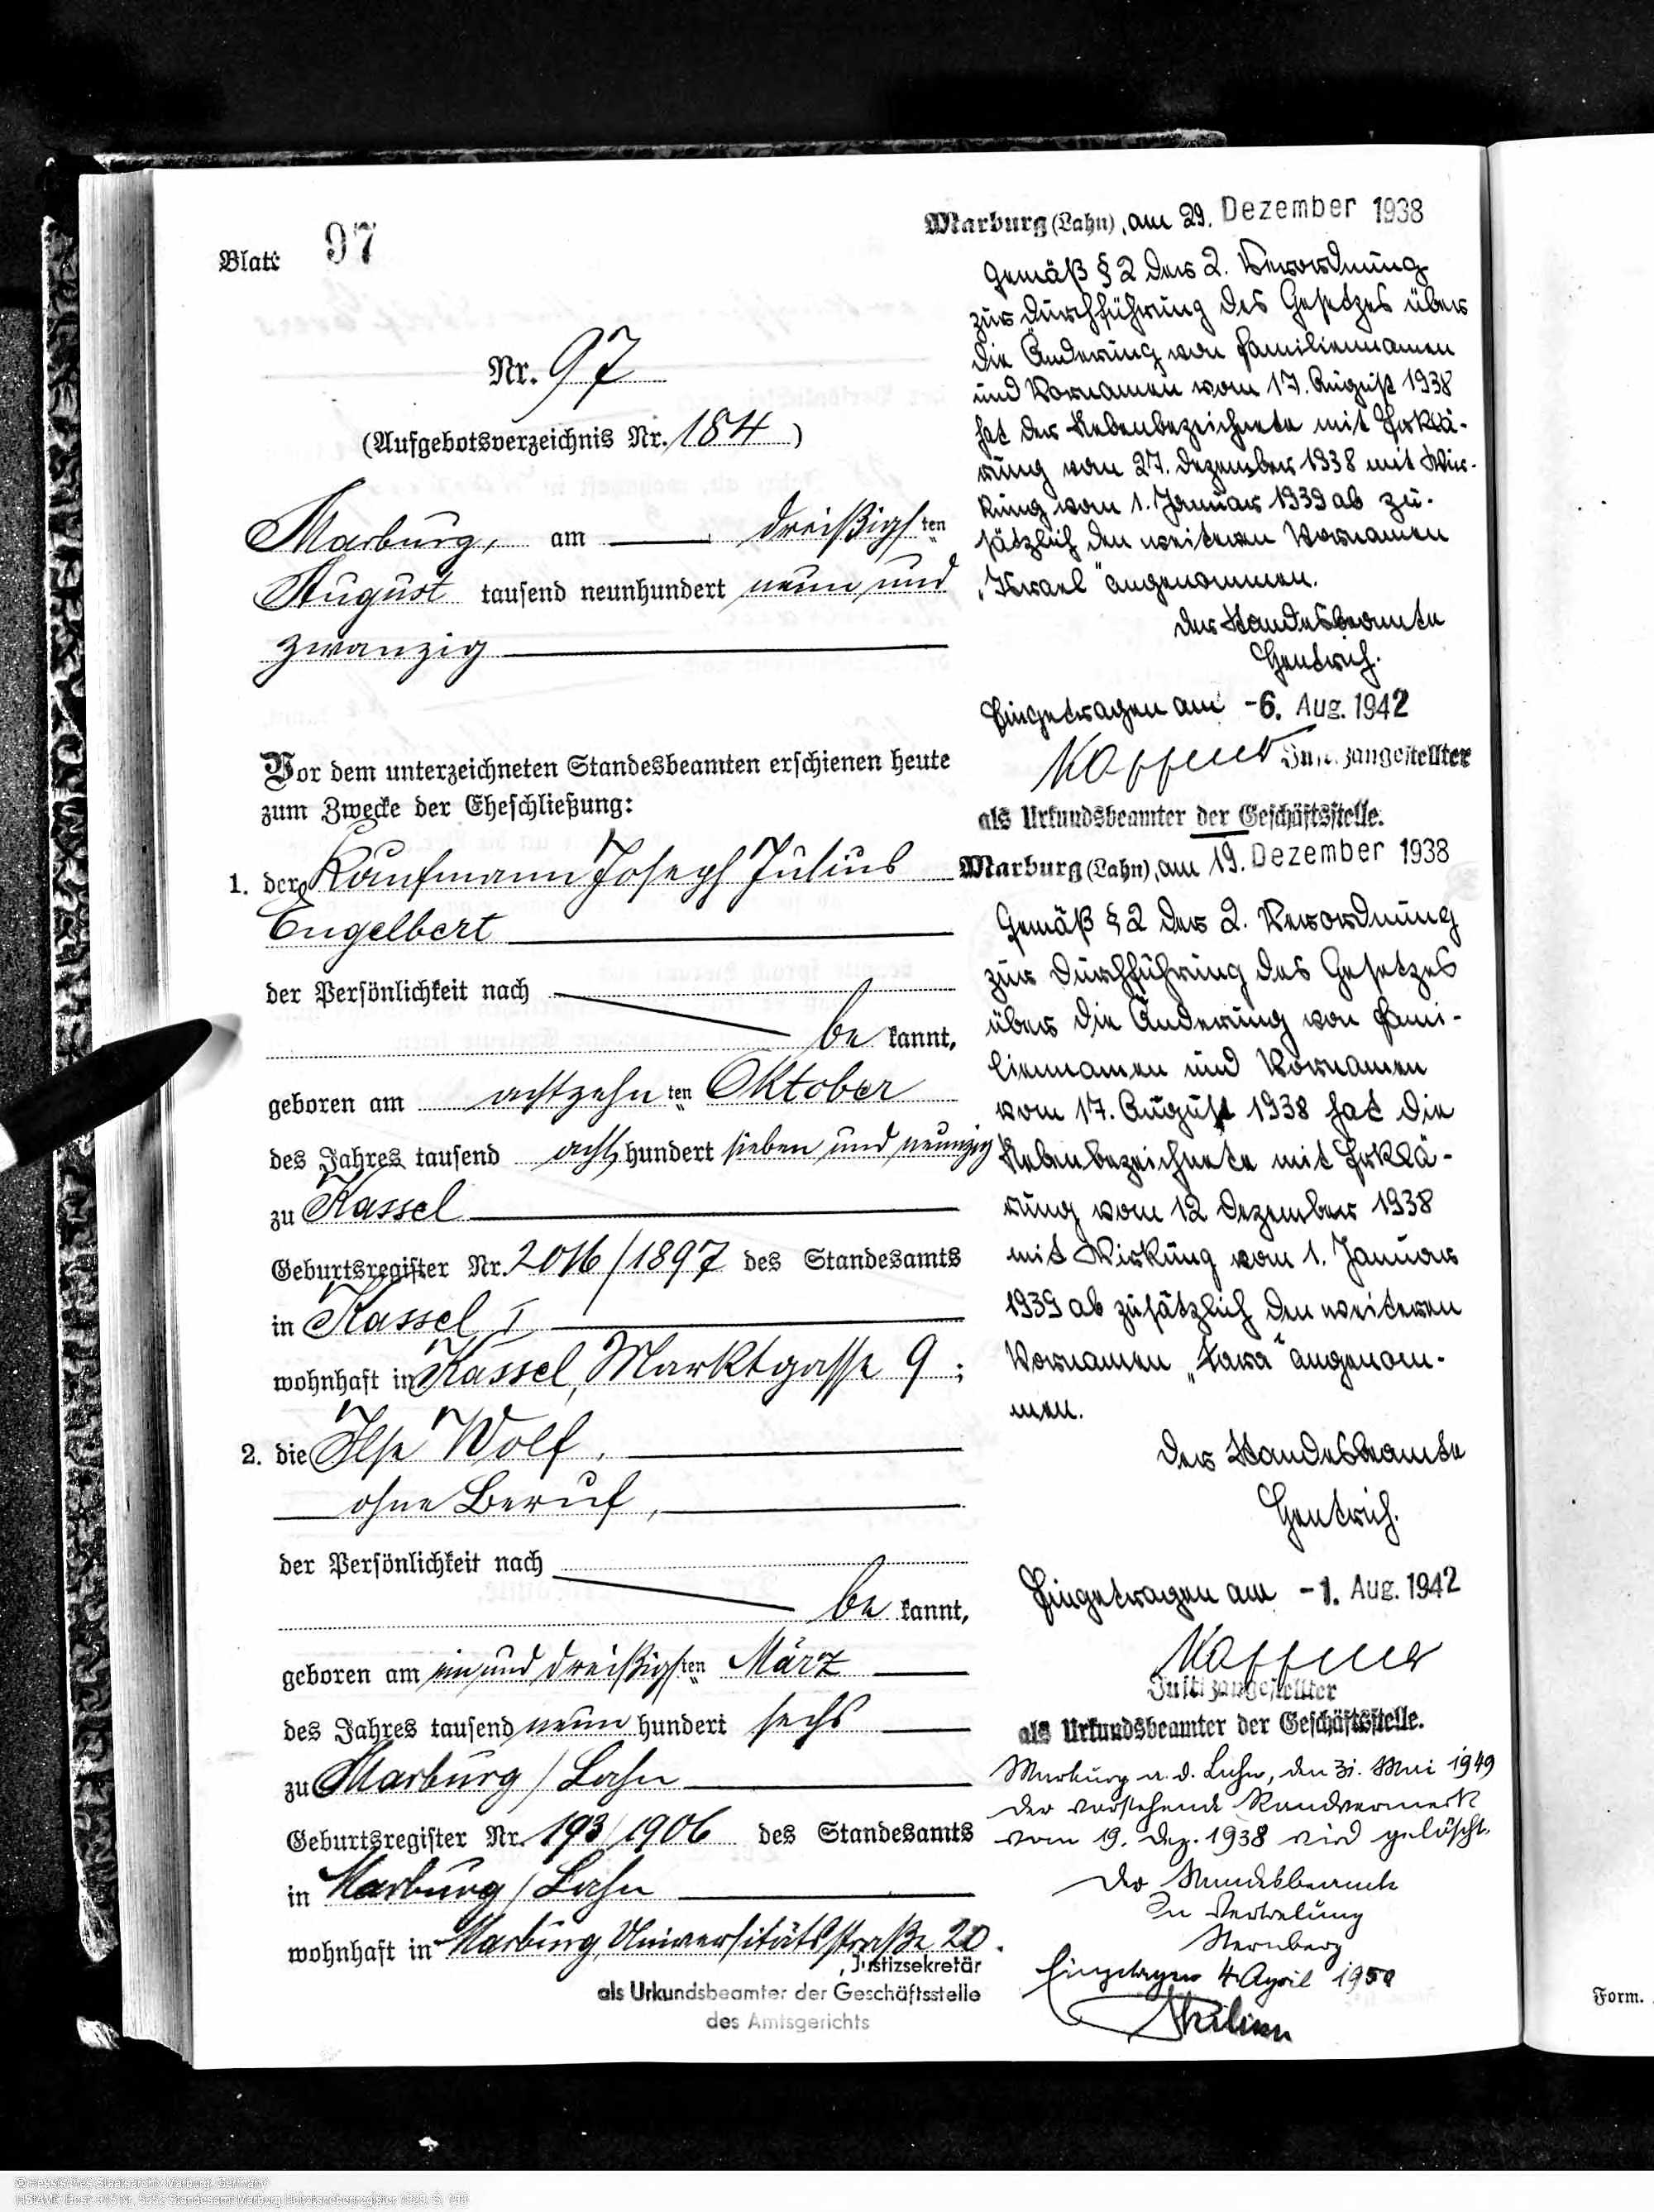 Blatt 97
Nr. 97
(Aufgebotsverzeichnis Nr. 184)
Marburg, am dreißigsten
August tausend neunhundert neun und
zwanzig
Vor dem unterzeichneten Standesbeamten erschienen heute
zum Zwecke der Eheschließung:
1. der Kaufmann Joseph Julius
Engelbert
der Persönlichkeit nach
be kannt,
geboren am achtzehnten Oktober
des Jahres tausend acht hundert sieben und neunzig
zu Kassel
Geburtsregister Nr. 2016/1897 des Standesamts
in Kassel I
wohnhaft in Kassel, Marktgasse 9;
2. die Ilse Wolf,
ohne Beruf,
der Persönlichkeit nach
be kannt,
geboren am ein und dreißigsten März
des Jahres tausend neun hundert sechs
zu Marburg / Lahn
Geburtsregister Nr. 193/1906 des Standesamts
in Marburg / Lahn
wohnhaft in Marburg, Universitätsstraße 20.
, Justizsekretär
als Urkundsbeamter der Geschäftsstelle
des Amtsgerichts
Marburg (Lahn), am 29. Dezember 1938
Gemäß § 2 der 2. Verordnung
zur Durchführung des Gesetzes über
die Änderung von Familiennamen
und Vornamen vom 17. August 1938
hat der Nebenbezeichnete mit Erklä-
rung vom 27. Dezember 1938 mit Wir-
kung vom 1. Januar 1939 ab zu-
sätzlich den weiteren Vornamen
„Israel" angenommen.
Der Standesbeamte
Hentrich.
Eingetragen am -6. Aug. 1942
Justizangestellter
als Urkundsbeamter der Geschäftsstelle.
Marburg (Lahn), am 19. Dezember 1938
Gemäß § 2 der 2. Verordnung
zur Durchführung des Gesetzes
über die Änderung von Fami-
liennamen und Vornamen
vom 17. August 1938 hat die
Nebenbezeichnete mit Erklä-
rung vom 12 Dezember 1938
mit Wirkung vom 1. Januar
1939 ab zusätzlich den weiteren
Vornamen „Sara" angenom-
men.
Der Standesbeamte
Hentrich.
Eingetragen am -1. Aug. 1942
Justizangestellter
als Urkundsbeamter der Geschäftsstelle.
Marburg a. d. Lahn, den 31. Mai 1949
Der vorstehende Randvermerk
vom 19. Dez. 1938 wird gelöscht.
Der Standesbeamte
In Vertretung
Sternberg
Eingetragen 4 April 1950
Form.
© Hessisches Staatsarchiv Marburg, Germany